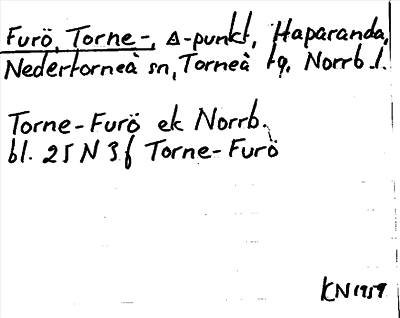 Furö, Torne-, △-punkt, Haparanda,
Nedertorneå sn, Torneå tg, Norrb. l.
Torne-Furö ek Norrb.
bl. 25 N 3 f Torne-Furö
KN 1959